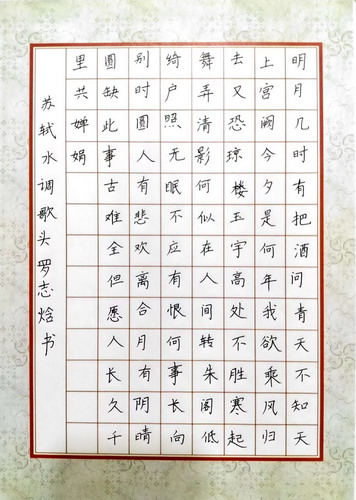 明月几时有把酒问青天不知天
上宫阙今夕是何年我欲乘风归
去又恐琼楼玉宇高处不胜寒起
舞弄清影何似在人间转朱阁低
绮户照无眠不应有恨何事长向
别时圆人有悲欢离合月有阴晴
圆缺此事古难全但愿人长久千
里共婵娟
苏轼水调歌头罗志焓书